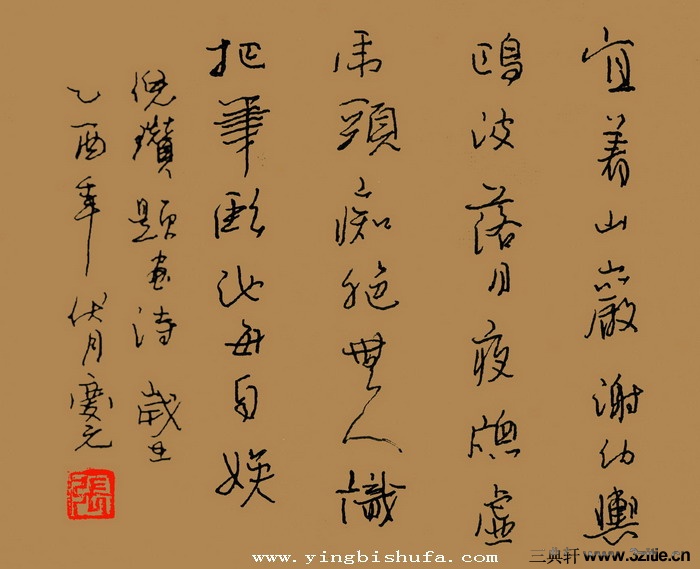 宜著山巖謝幼輿
鷗波落月夜牕虛
虎頭痴絕無人識
把筆臨池每自娛
倪瓚題畫詩 歲在
乙酉年伏月慶元
張
www.yingbishufa.com
三典轩 www.3zitie.cn